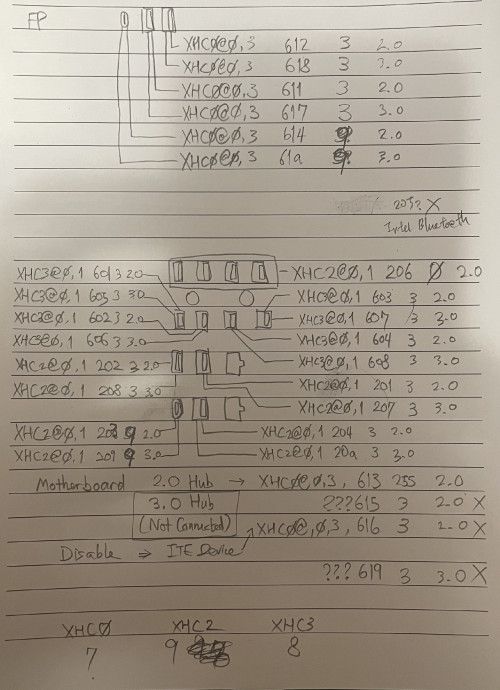 FP
XHC0@0,3 612 3 2.0
XHC0@0,3 618 3 3.0
XHC0@0,3 611 3 2.0
XHC0@0,3 617 3 3.0
XHC0@0,3 614 9 2.0
XHC0@0,3 61a 9 3.0
203? X
Intel Bluetooth
XHC3@0,1 601 3 2.0
XHC2@0,1 206 0 2.0
XHC3@0,1 605 3 3.0
XHC3@0,1 603 3 2.0
XHC3@0,1 602 3 2.0
XHC3@0,1 607 3 3.0
XHC3@0,1 606 3 3.0
XHC3@0,1 604 3 2.0
XHC2@0,1 202 3 2.0
XHC3@0,1 608 3 3.0
XHC2@0,1 208 3 3.0
XHC2@0,1 201 3 2.0
XHC2@0,1 207 3 3.0
XHC2@0,1 203 9 2.0
XHC2@0,1 204 3 2.0
XHC2@0,1 209 9 3.0
XHC2@0,1 20a 3 3.0
Motherboard 2.0 Hub → XHC0@0,3, 613 255 2.0
3.0 Hub ???615 3 2.0 X
(Not Connected) XHC0@,0,3, 616 3 2.0 X
Disable ⇒ ITE Device
???619 3 3.0 X
XHC0 XHC2 XHC3
7 9 8